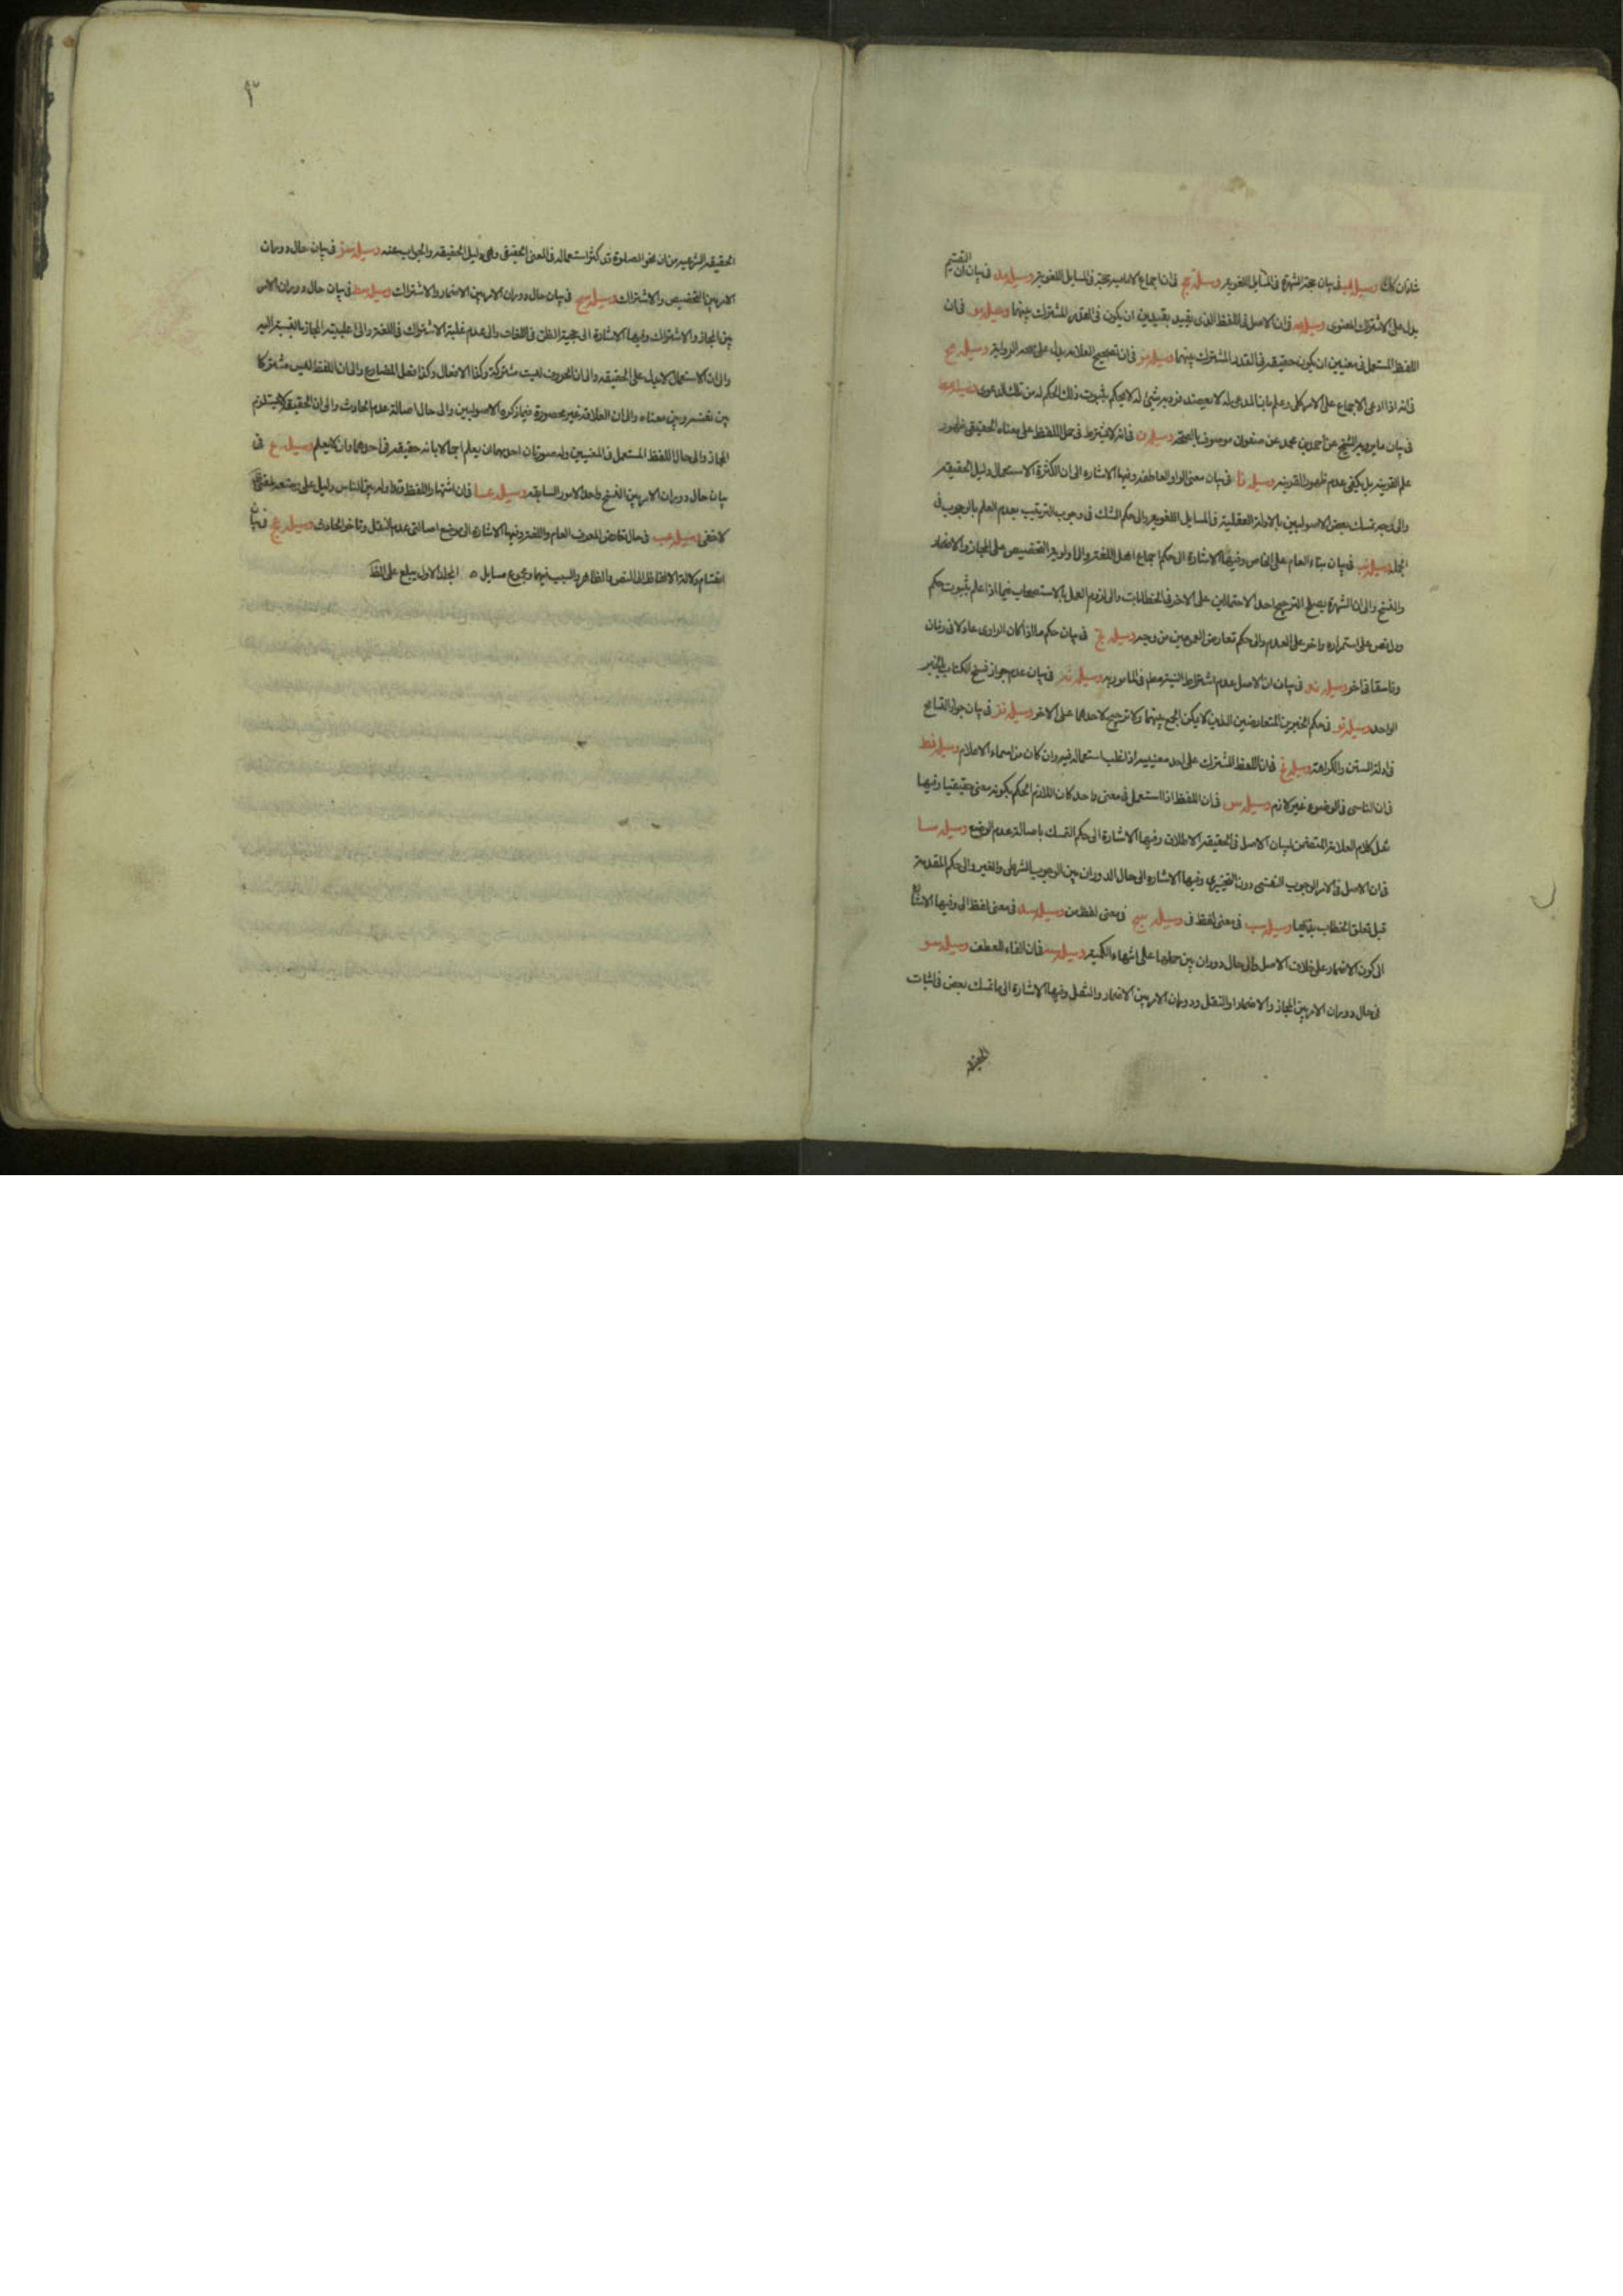 شاذان كذلك وسيلة مب في بيان حجية الشهرة في المسايل اللغوية وسيلة مج في ان اجماع الامامية حجة في المسايل اللغوية وسيلة مد في بيان ان التقسيم
يدل على الاشتراك المعنوى وسيلة مه في ان الاصل في اللفظ الذى يقيد بقيدين ان يكون في القدر المشترك بينهما وسيلة مو في ان
اللفظ المستعمل في معنيين ان يكون حقيقة في القدر المشترك بينهما وسيلة مز في ان تصحيح العلامة يدل على صحة الرواية وسيلة مح
في انه اذا ادعى الاجماع على الامر الكلى وعلم بان المدعى له لا يعتمد فرد بشئ له لا يحكم بثبوت ذلك الحكم له من تلك الدعوى وسيلة مط
في بيان ما يرويه الشيخ عن احمد بن محمد عن صفوان موصوف بالصحة وسيلة ن في انه لا يشترط في حمل اللفظ على معناه الحقيقى ظهور
علم القرينة بل يكفى عدم ظهور القرينة وسيلة نا في بيان معنى الواو العاطفة وفيها الاشارة الى ان الكثرة الاستعمال دليل الحقيقة
والى وجه تمسك بعض الاصوليين بالادلة العقلية في المسايل اللغوية والى حكم الشك في وجوب الترتيب بعدم العلم بالوجوب في
الجملة وسيلة نب في بيان بناء العام على الخاص وفيها الاشارة الى حكم اجماع اهل اللغة والى اولوية التخصيص على المجاز والاضمار
والنسخ والى ان الشهرة يصلح لترجيح احد الاحتمالين على الاخر في الخطابات والى لزوم العمل بالاستصحاب فيما اذا علم بثبوت حكم
ودل نص على استمراره واخر على العدم والى حكم تعارض العمومين من وجه وسيلة نج في بيان حكم ما اذا كان الراوى عادلا في زمان
وفاسقا في اخر وسيلة ند في بيان ان الاصل عدم اشتراط النية معه في المامور به وسيلة نه في بيان عدم جواز نسخ الكتاب بالخبر
الواحد وسيلة نو في حكم الخبرين المتعارضين الذين لا يمكن الجمع بينهما ولا ترجيح لاحدهما على الاخر وسيلة نز في بيان جواز التسامح
في ادلة السنن والكراهة وسيلة نح في ان اللفظ المشترك على احد معنييه اذا غلب استعماله فيه وان كان من اسماء الاعلام وسيلة نط
في ان التاسى في الوضوء غير لازم وسيلة س في ان اللفظ اذا استعمل في معنى واحد كان اللازم الحكم بكونه معنى حقيقيا وفيها
نقل كلام العلامة المتضمن لبيان الاصل في الحقيقة الاطلاق وفيها الاشارة الى حكم التمسك باصالة عدم الوضع وسيلة سا
في ان الاصل في الامر الوجوب النفسى دون الغيرى وفيها الاشارة الى حال الدوران بين الوجوب الشرطى والغير والى حكم المقدمة
قبل تعلق الخطاب بذيها وسيلة سب في معنى لفظ في وسيلة سج في معنى لفظ من وسيلة سد في معنى لفظ الى وفيها الاشارة
الى كون الاضمار على خلاف الاصل والى حال دوران بين حملها على انتهاء الكمية وسيلة سه في ان الفاء للعطف وسيلة سو
في حال دوران الامر بين المجاز والاضمار والنقل ودوران الامر بين الاضمار والنقل وفيها الاشارة الى ما تمسك بعض في اثبات
الحقيقة
٩٣
الحقيقة الشرعية من ان نحو الصلوة قد كثر استعماله في المعنى الحقيقى وهى دليل الحقيقة والجواب عنه وسيلة سز في بيان حال دوران
الامر بين التخصيص والاشتراك وسيلة سح في بيان حال دوران الامر بين الاضمار والاشتراك وسيلة سط في بيان حال دوران الامر
بين المجاز والاشتراك وفيها الاشارة الى حجية الظن في اللغات والى عدم غلبة الاشتراك في اللغة والى اغلبية المجاز بالنسبة اليه
والى ان الاستعمال لا يدل على الحقيقة والى ان الحروف ليست مشتركة وكذا الافعال وكذا فعل المضارع والى ان اللفظ ليس مشتركا
بين نفسه وبين معناه والى ان العلاقة غير محصورة فيما ذكره الاصوليين والى حال اصالة عدم الحادث والى ان الحقيقة لا يستلزم
المجاز والى حال اللفظ المستعمل في المعنيين وله صورتان احدهما ان يعلم اجمالا بانه حقيقة في احدهما وان لا يعلم وسيلة ع في
بيان حال دوران الامر بين النسخ واحد الامور السابقة وسيلة عا في ان اشتهار اللفظ وتداوله بين الناس دليل على وضعه لمعنى
لا خفى وسيلة عب في حال تعارض العرف العام واللغة وفيها الاشارة الى موضع اصالتى عدم النقل وتاخر الحادث وسيلة عج في بيان
انقسام دلالة الالفاظ الى النص والظاهر والسبب فيهما ومجموع مسايل ه المجلد الاول يبلغ على